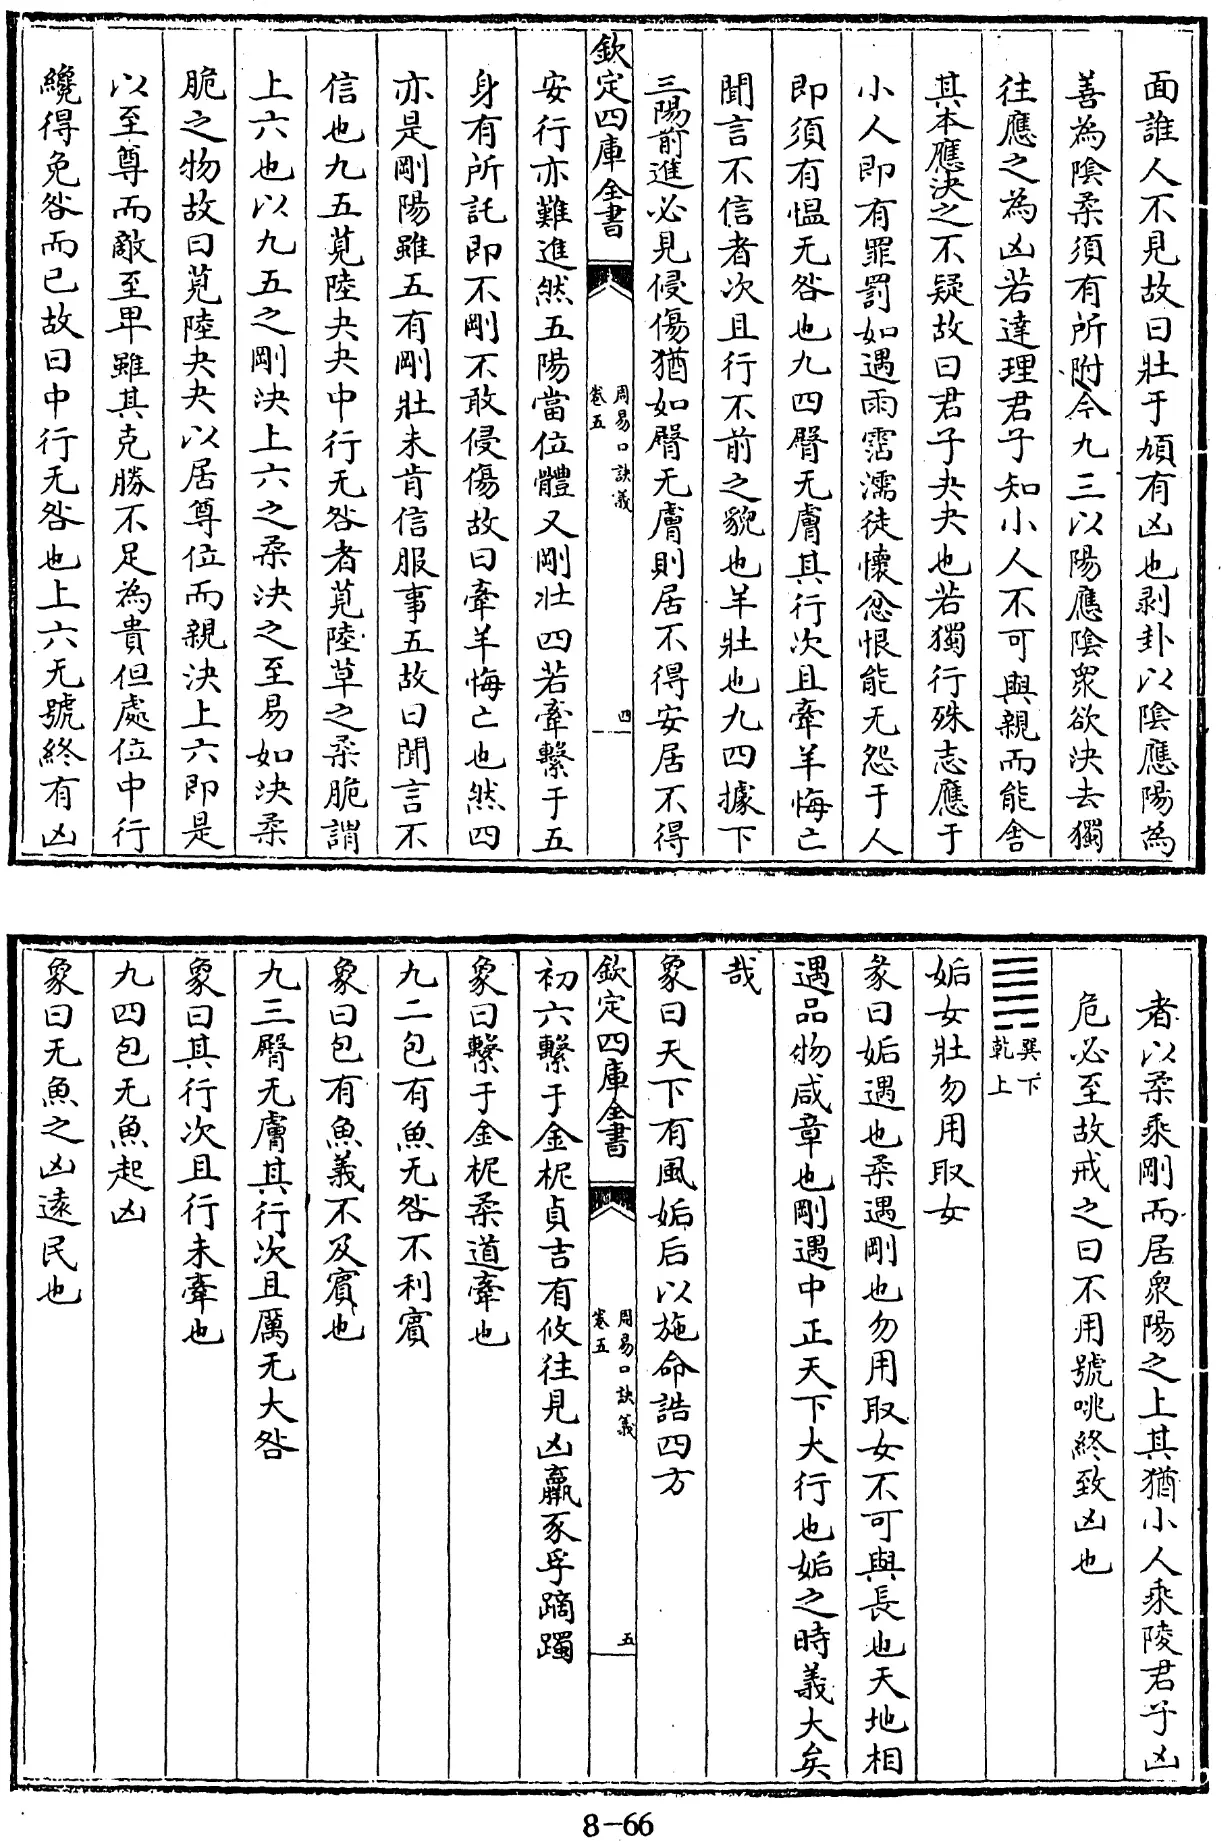 面誰人不見故曰壯于頄有凶也剥卦以陰應陽為
善為陰柔須有所附今九三以陽應陰衆欲決去獨
往應之為凶若達理君子知小人不可與親而能舎
其本應決之不疑故曰君子夬夬也若獨行殊志應于
小人即有罪罰如遇雨霑濡徒懷忿恨能无怨于人
即須有愠无咎也九四臀无膚其行次且牽羊悔亡
聞言不信者次且行不前之貌也羊壯也九四據下
三陽前進必見侵傷猶如臀无膚則居不得安居不得
欽定四庫全書
周易口訣義
卷五
四
安行亦難進然五陽當位體又剛壯四若牽繫于五
身有所託即不剛不敢侵傷故曰牽羊悔亡也然四
亦是剛陽雖五有剛壯未肯信服事五故曰聞言不
信也九五莧陸夬夬中行无咎者莧陸草之柔脆謂
上六也以九五之剛決上六之柔決之至易如決柔
脆之物故曰莧陸夬夬以居尊位而親決上六即是
以至尊而敵至卑雖其克勝不足為貴但處位中行
纔得免咎而已故曰中行无咎也上六无號終有凶
者以柔乘剛而居衆陽之上其猶小人乘陵君子凶
危必至故戒之曰不用號咷終致凶也
䷫巽下
乾上
姤女壯勿用取女
彖曰姤遇也柔遇剛也勿用取女不可與長也天地相
遇品物咸章也剛遇中正天下大行也姤之時義大矣
哉
象曰天下有風姤后以施命誥四方
欽定四庫全書
周易口訣義
卷五
五
初六繫于金柅貞吉有攸往見凶羸豕孚蹢躅
象曰繫于金柅柔道牽也
九二包有魚无咎不利賓
象曰包有魚義不及賓也
九三臀无膚其行次且厲无大咎
象曰其行次且行未牽也
九四包无魚起凶
象曰无魚之凶逺民也
8-66